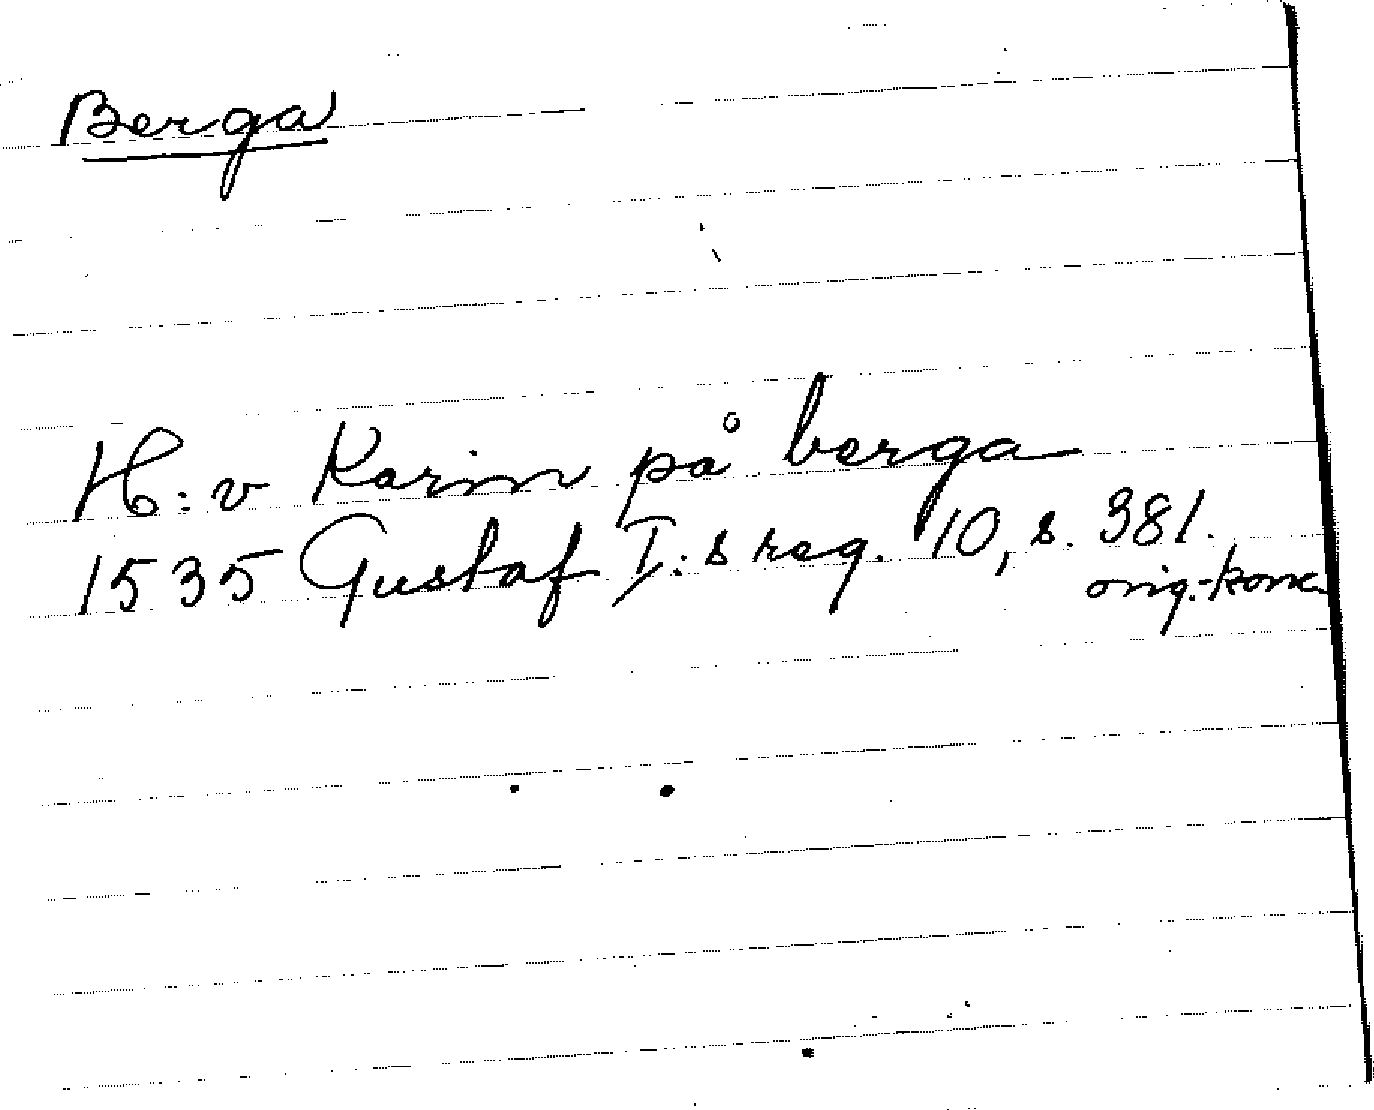 Berga
H:v Karin på berga
1535 Gustaf I:s reg. 10, s. 381.
orig.-konc.